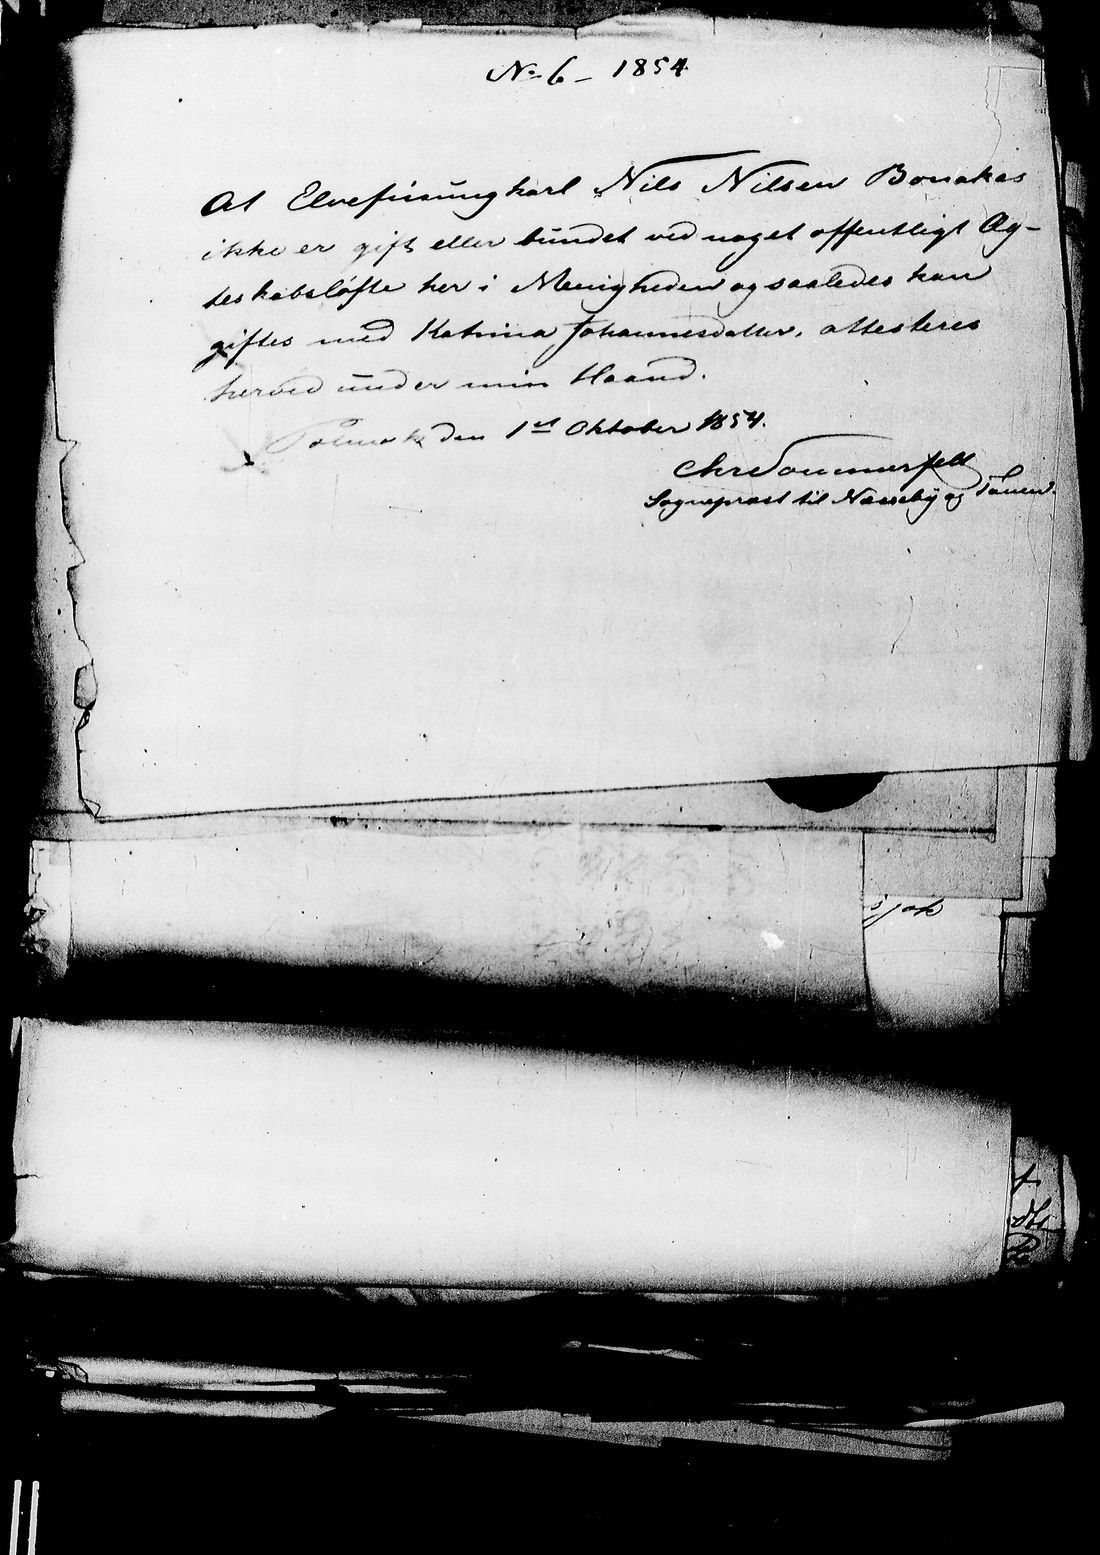 No 6 - 1854
At Elvefinnungkarl Nils Nilsen Bonakas
ikke er gift eller bundet ved noget offentligt Æg-
teskabsløfte her i Menigheden og saaledes kan
giftes med Katrina Johannesdatter, attesteres
herved under min Haand.
Polmak den 1st Oktober 1854.
Chr Sommerfelt
Sognepræst til Næsseby og Tanen.
sjok